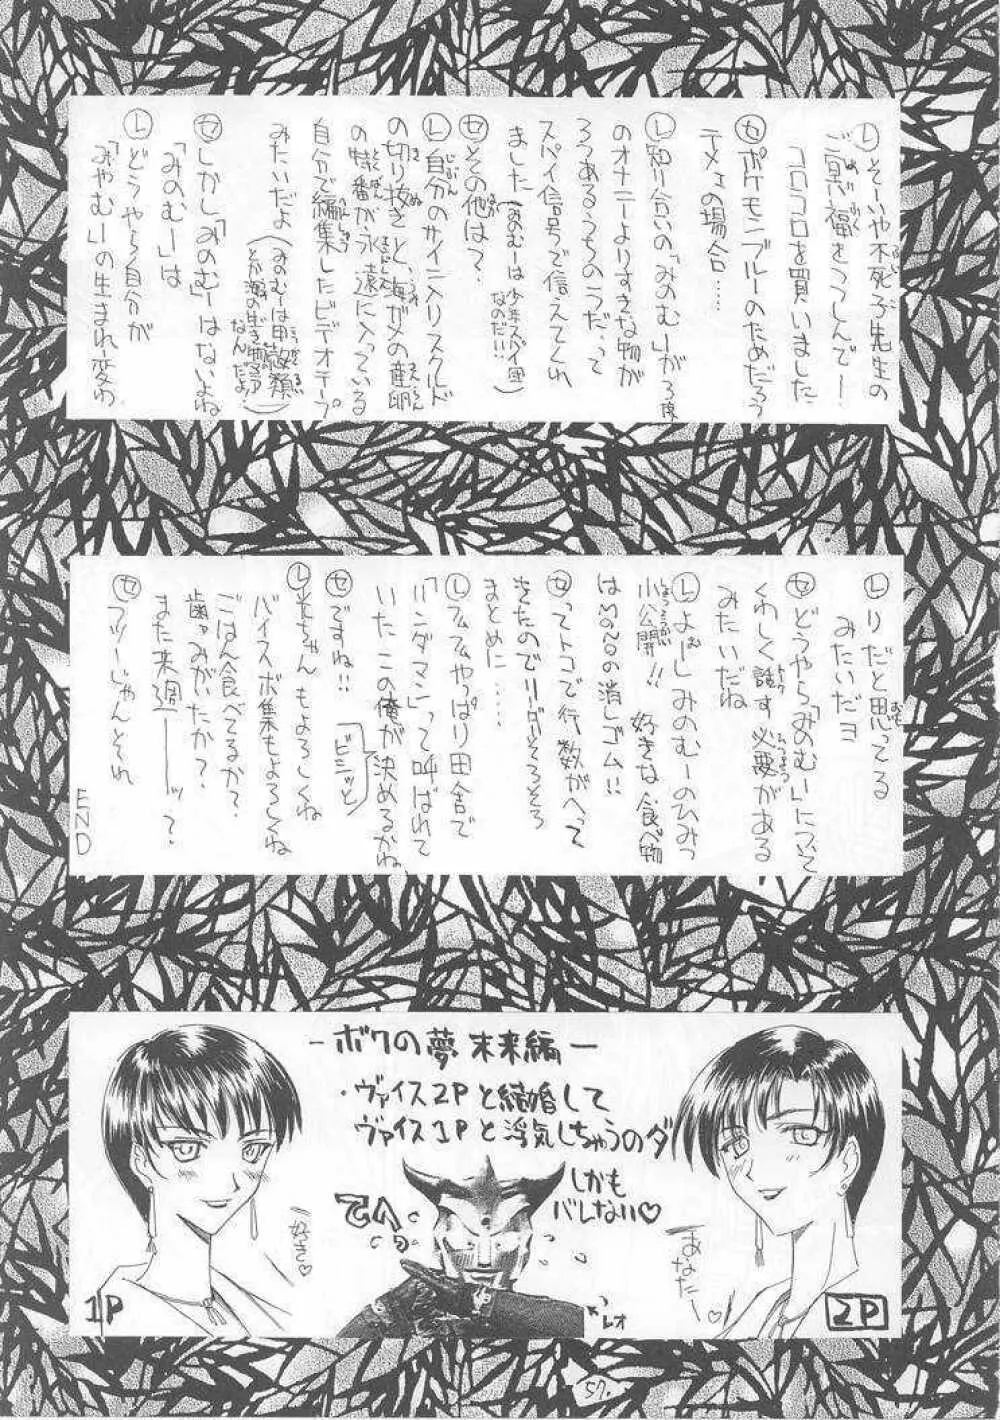 Ⓛそーいや不死子先生の
ご冥福をつつしんでー
コロコロを買いました
Ⓢポケモンブルーのためだろう
テメェの場合……
Ⓛ知り合いの「みのむー」が
のオナニーよりすきな物が
ろあるうちの1つだ、って
スパイ信号で信えてくれ
ました(みのむーは少年スパイ団
なのだ!!)
Ⓢその他は?
Ⓛ自分のサイン入りスクルド
の切り抜きと、海ガメの産卵
の特番が、永遠に入っている
自分で編集したビデオテープ
みたいだよ(みのむーは甲殻類
とか海の生き物マニア
なんだよ)
Ⓢしかし「みのむー」はないよね
「みのむー」は
Ⓛどうやら自分が
「みやむー」の生まれ変わ
Ⓛりだと思ってる
みたいだヨ
Ⓢどうやら「みのむー」について
くわしく話す必要がある
みたいだね
Ⓛよーし みのむーのひみつ
小公開!! 好きな食べ物
はMONOの消しゴム!!
Ⓢってトコで行数がへって
きたのでリーダーそろそろ
まとめに……
Ⓛフムフムやっぱり田舎で
「ハンダマン」って呼ばれて
いた この俺が決めるかね
Ⓢですね!!
ビシッと
Ⓛそちゃん もよろしくね
バイスボ集もよろしくね
ごはん食べてるか?
歯みがいたか?
また来週――ッ?
Ⓢフツーじゃんそれ
END
-ボクの夢 未来編-
・ヴァイス2Pと結婚して
ヴァイス1Pと浮気しちゃうのダ
しかも
バレない♡
てへっ
好き♡
あなたー♡
1P
レオ
2P
57.